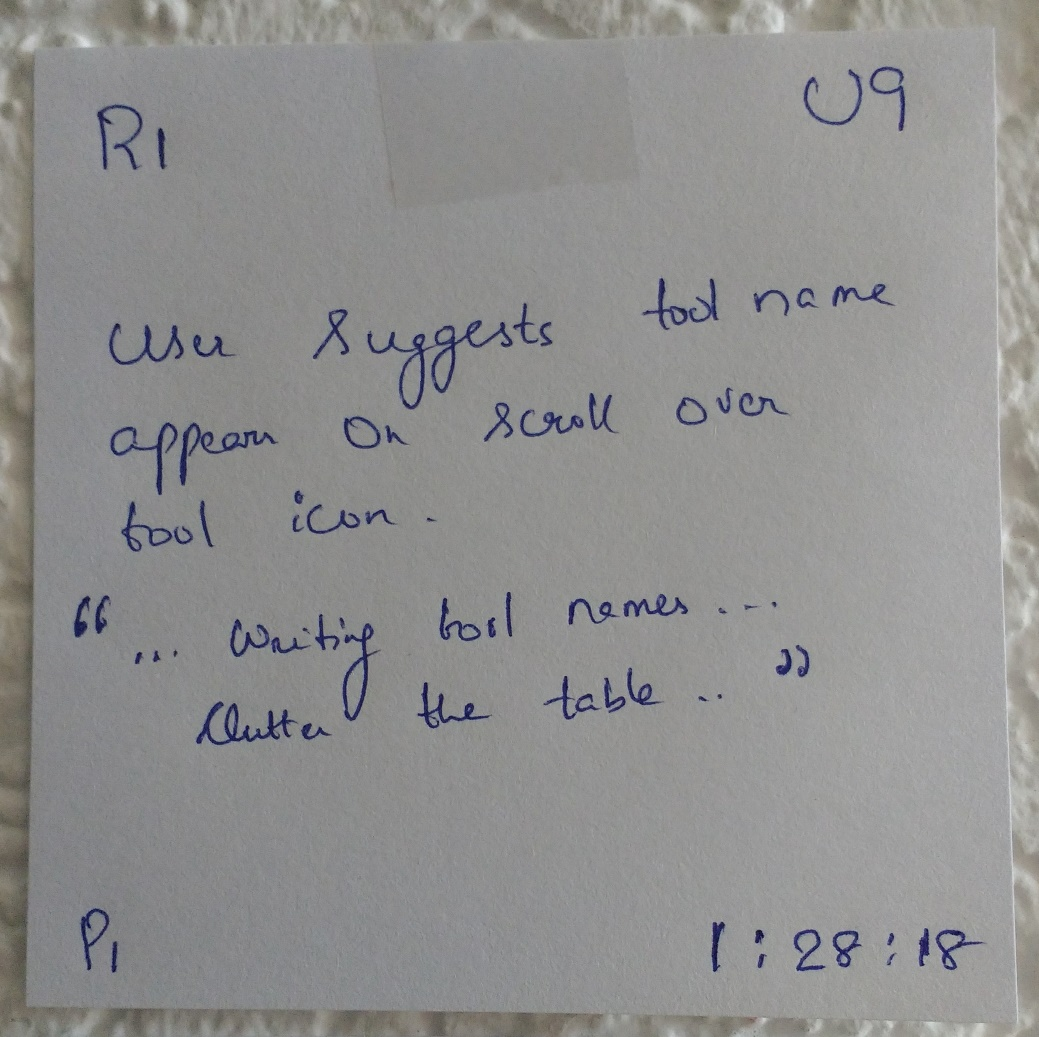 R1
U9
User suggests tool name
appear on scroll over
tool icon.
"... Writing tool names ...
Clutter the table .. "
P1
1 : 28 : 18